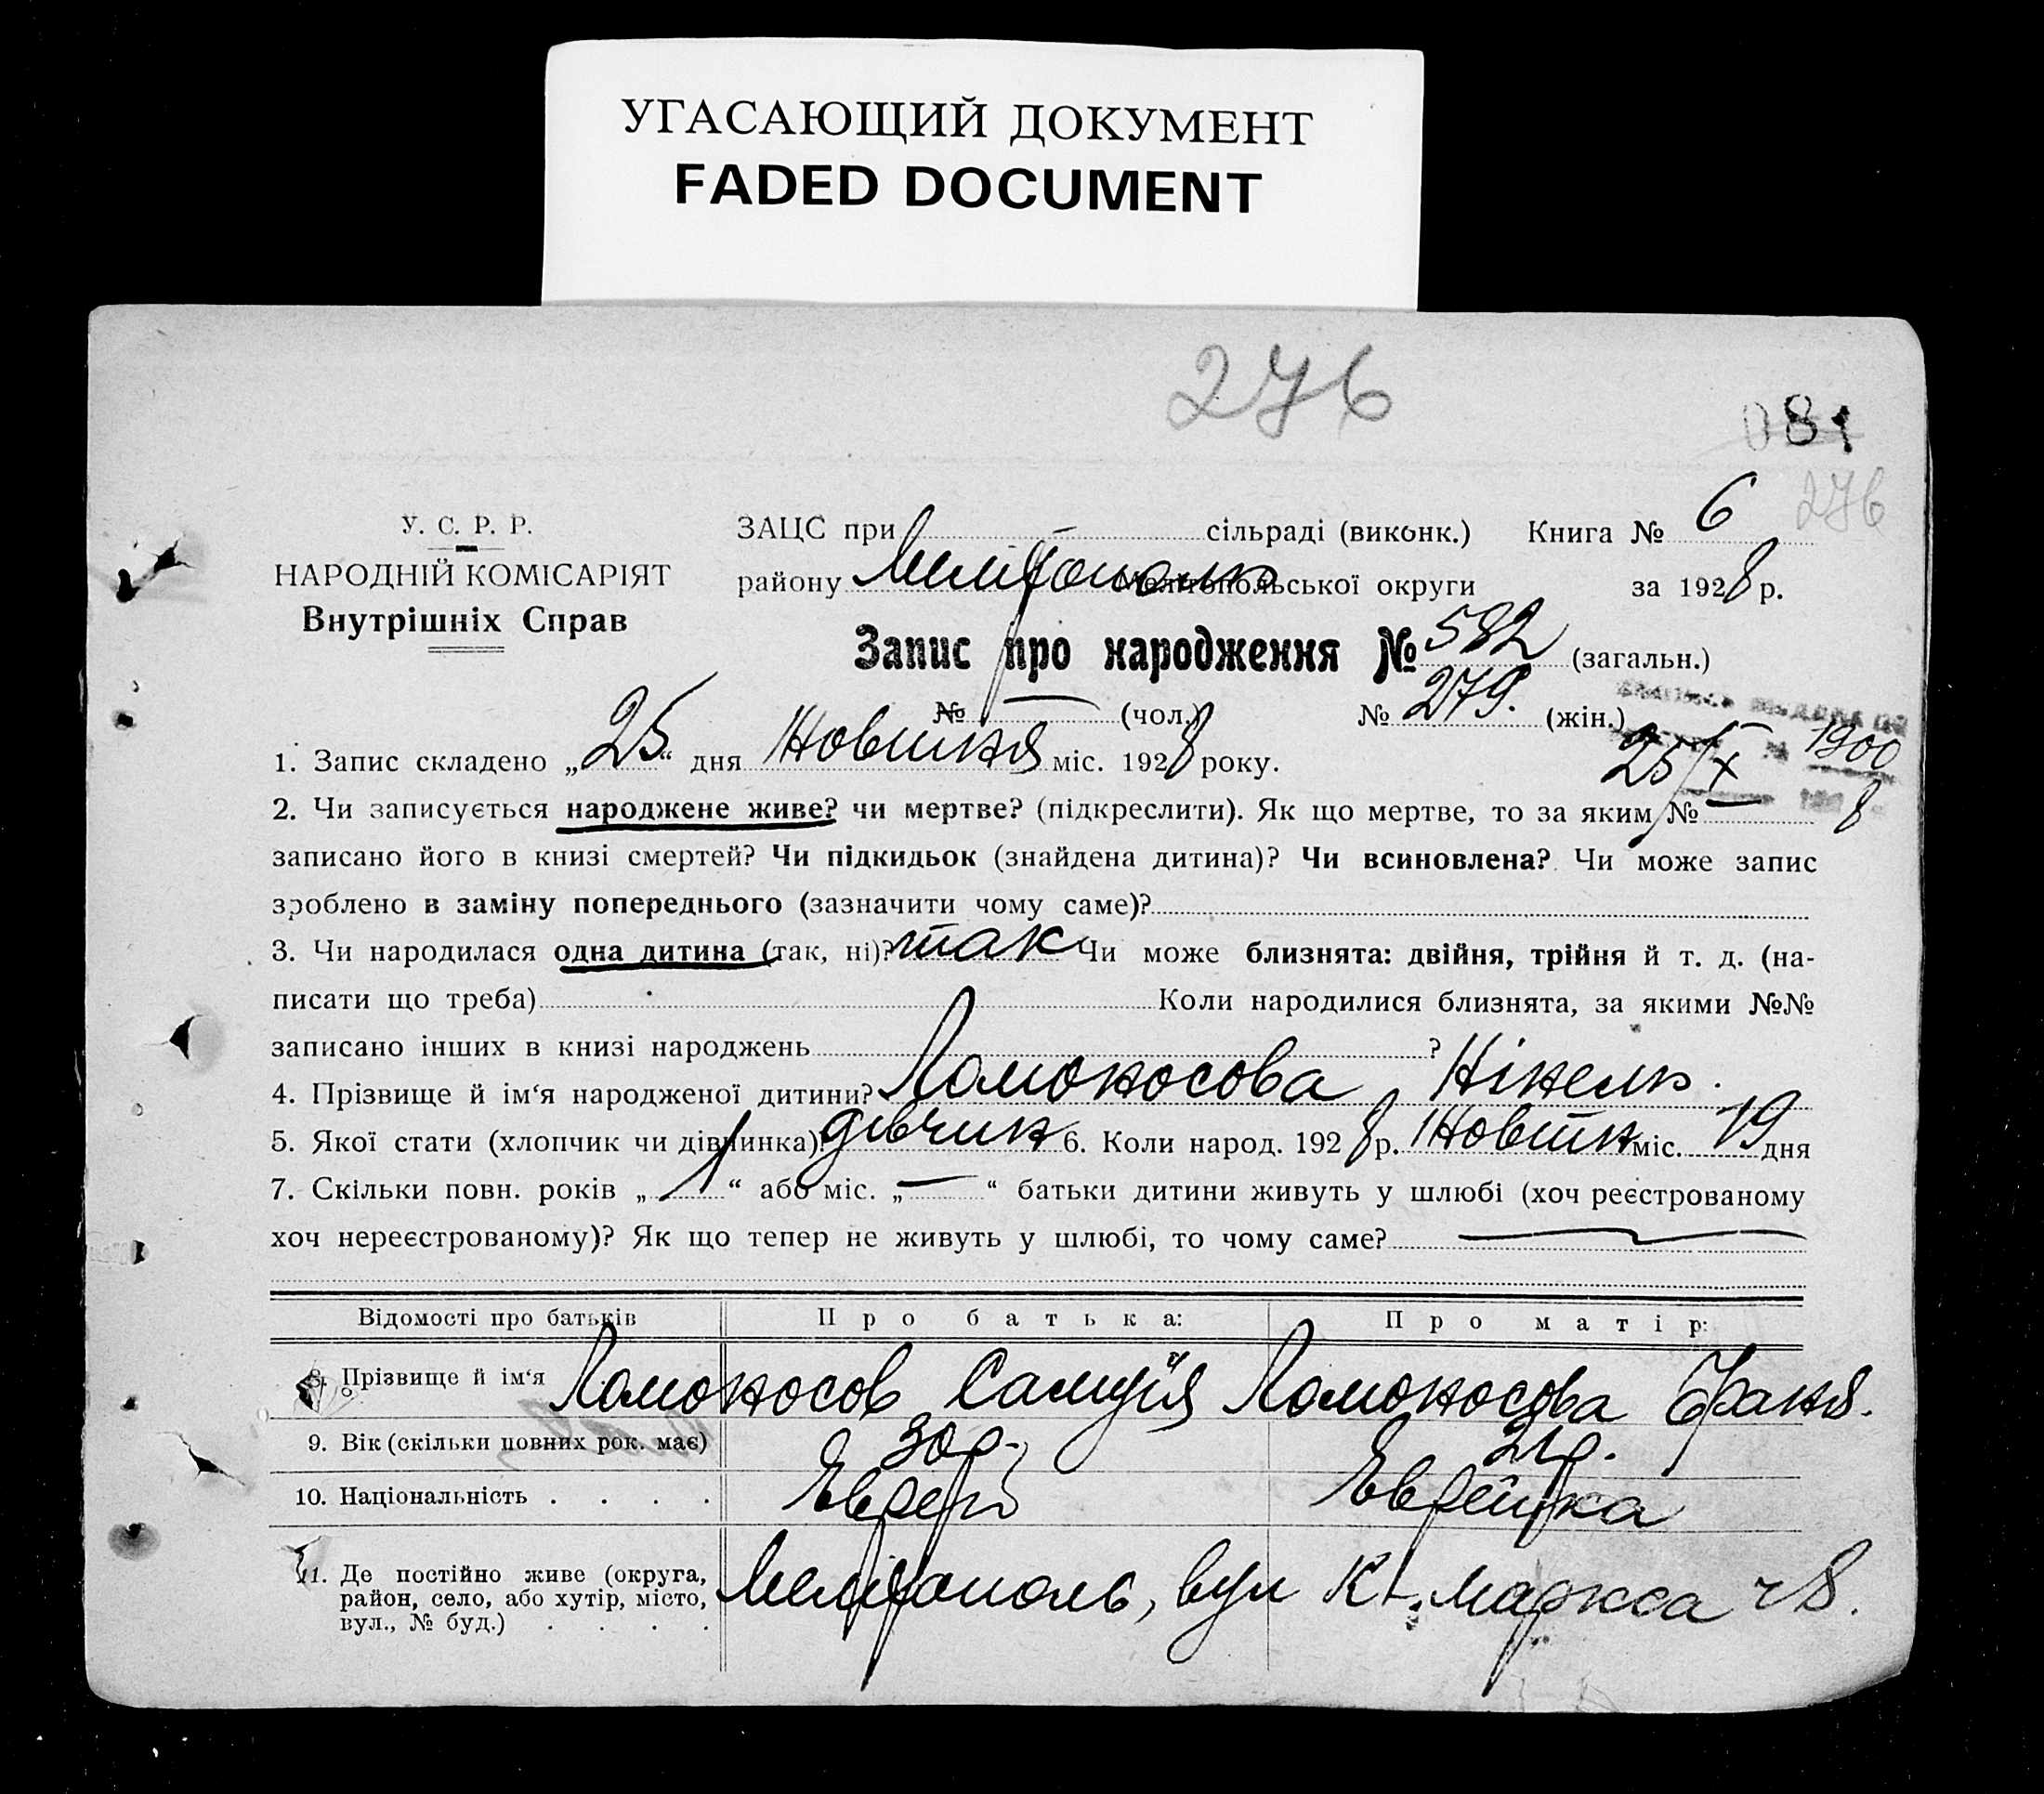 УГАСАЮЩИЙ ДОКУМЕНТ
FADED DOCUMENT
276
081
276
У. С. Р. Р.
НАРОДНІЙ КОМІСАРІЯТ
Внутрішніх Справ
ЗАЦС при сільраді (виконк.) Книга № 6
району Мелітополь Мелітопольської округи за 1928 р.
Запис про народження № 582 (загальн.)
№ — (чол.) № 279. (жін.)
25/X 1900
8
1. Запис складено „25“ дня Новтня міс. 1928 року.
2. Чи записується народжене живе? чи мертве? (підкреслити). Як що мертве, то за яким № —
записано його в книзі смертей? Чи підкидьок (знайдена дитина)? Чи всиновлена? Чи може запис
зроблено в заміну попереднього (зазначити чому саме)?
3. Чи народилася одна дитина (так, ні)? так Чи може близнята: двійня, трійня й т. д. (на-
писати що треба) Коли народилися близнята, за якими №№
записано інших в книзі народжень ?
4. Прізвище й ім‘я народженої дитини? Ломоносова Нінель.
5. Якої стати (хлопчик чи дівчинка)? дівчин 6. Коли народ. 1928 р. Новтн міс. 19 дня
7. Скільки повн. років „1“ або міс. „—“ батьки дитини живуть у шлюбі (хоч реєстрованому
хоч нереєстрованому)? Як що тепер не живуть у шлюбі, то чому саме? —
Відомості про батьків Про батька: Про матір:
8. Прізвище й ім‘я Ломоносов Самуїл Ломоносова Фаня.
9. Вік (скільки повних рок. має) 30 р. 21 р.
10. Національність . . . . Еврей Еврейка
11. Де постійно живе (округа,
район, село, або хутір, місто,
вул., № буд.) . . . .
Мелітополь, вул К. Маркса ч 8.